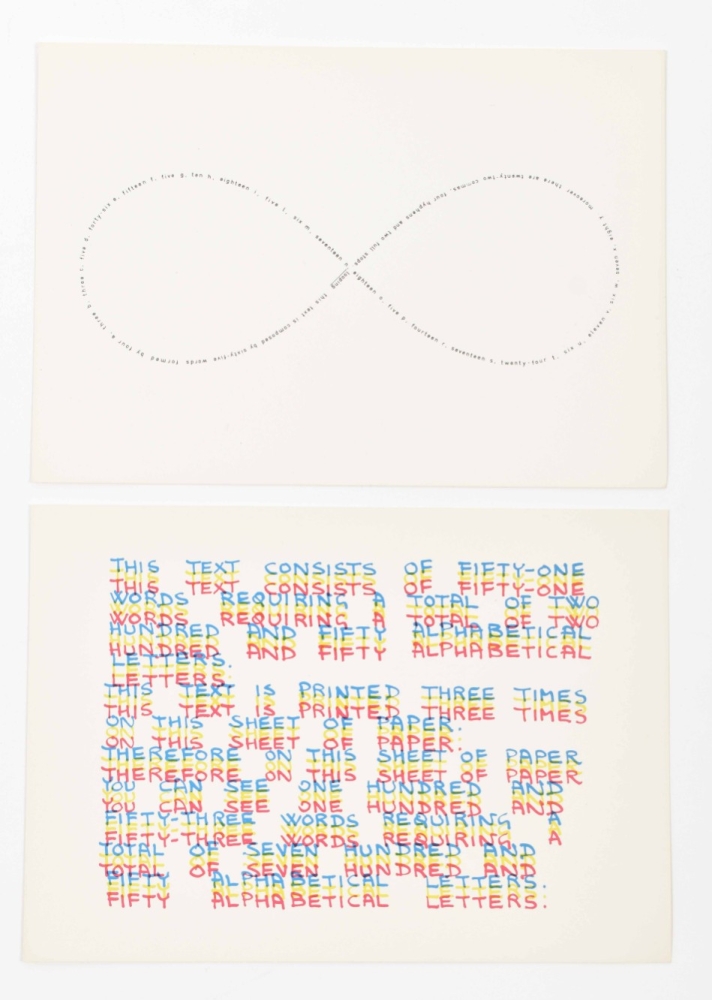 looping this text is composed by sixty-five words formed by four a, three b, three c, five d, forty-six e, fifteen f, five g, ten h, eighteen i, five l, six m, seventeen n, eighteen o, five p, fourteen r, seventeen s, twenty-four t, six u, eight y. moreover there are twenty-two commas, four hyphens and two full stops
THIS TEXT CONSISTS OF FIFTY-ONE
WORDS REQUIRING A TOTAL OF TWO
HUNDRED AND FIFTY ALPHABETICAL
LETTERS.
THIS TEXT IS PRINTED THREE TIMES
ON THIS SHEET OF PAPER.
THEREFORE ON THIS SHEET OF PAPER
YOU CAN SEE ONE HUNDRED AND
FIFTY-THREE WORDS REQUIRING A
TOTAL OF SEVEN HUNDRED AND
FIFTY ALPHABETICAL LETTERS.